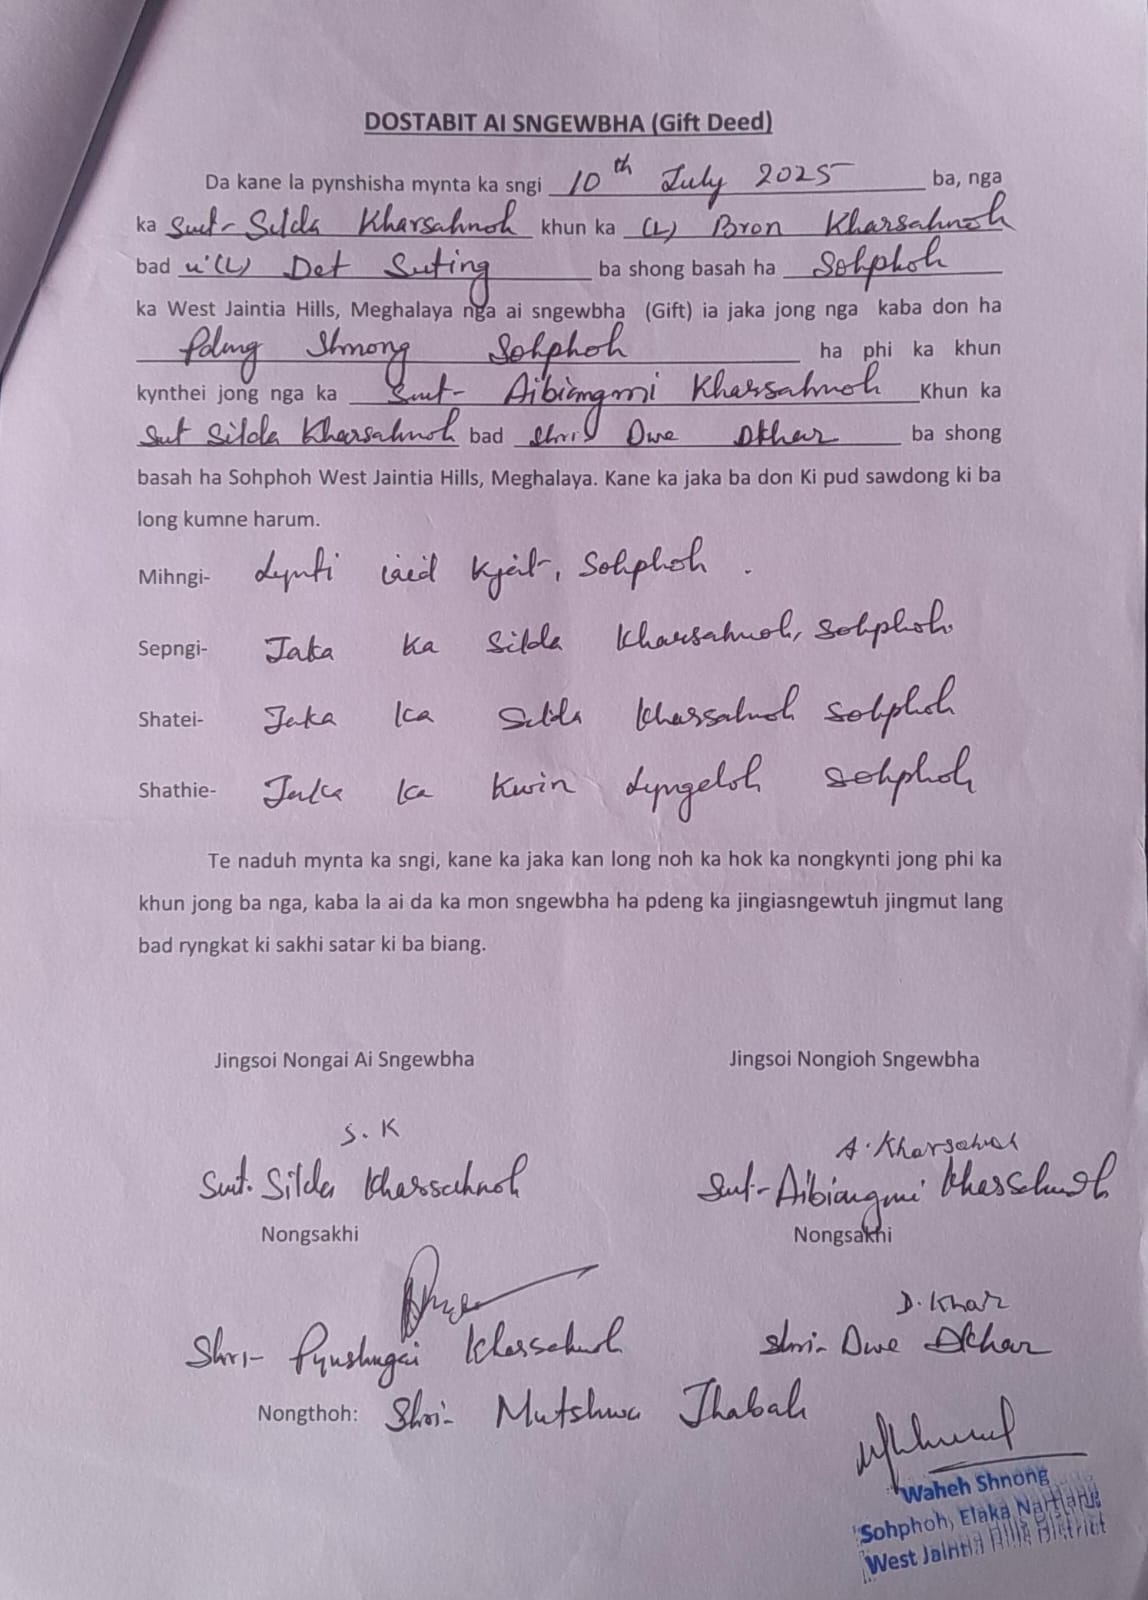 DOSTABIT AI SNGEWBHA (Gift Deed)
Da kane la pynshisha mynta ka sngi 10th July 2025 ba, nga
ka Smt- Silda Kharsahnoh khun ka (L) Bron Kharsahnoh
bad u (L) Det Suting ba shong basah ha Sohphoh
ka West Jaintia Hills, Meghalaya nga ai sngewbha (Gift) ia jaka jong nga kaba don ha
Pdeng Shnong Sohphoh ha phi ka khun
kynthei jong nga ka Smt- Aibiangmi Kharsahnoh Khun ka
Smt Silda Kharsahnoh bad Shri Dwe Dkhar ba shong
basah ha Sohphoh West Jaintia Hills, Meghalaya. Kane ka jaka ba don Ki pud sawdong ki ba
long kumne harum.
Mihngi- Lynti iaid Kjat, Sohphoh.
Sepngi- Jaka Ka Silda Kharsahnoh, Sohphoh.
Shatei- Jaka Ka Silda Kharsahnoh Sohphoh
Shathie- Jaka Ka Kwin Lyngdoh Sohphoh
Te naduh mynta ka sngi, kane ka jaka kan long noh ka hok ka nongkynti jong phi ka
khun jong ba nga, kaba la ai da ka mon sngewbha ha pdeng ka jingiasngewtuh jingmut lang
bad ryngkat ki sakhi satar ki ba biang.
Jingsoi Nongai Ai Sngewbha Jingsoi Nongioh Sngewbha
S. K A. Kharsahnoh
Smt. Silda Kharsahnoh Smt- Aibiangmi Kharsahnoh
Nongsakhi Nongsakhi
D. Khar
Shri- Pynshngai Kharsahnoh Shri- Dwe Dkhar
Nongthoh: Shri- Mutshwa Thabah
Waheh Shnong
Sohphoh, Elaka Nartiang
West Jaintia Hills District